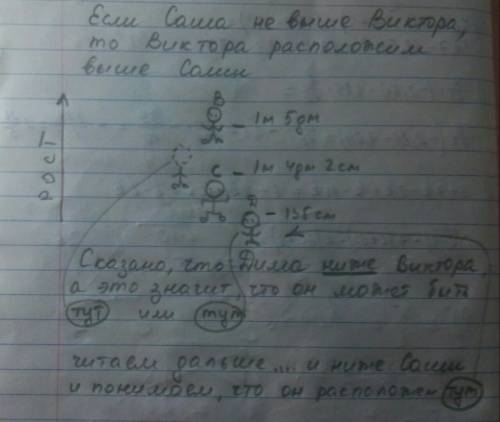 Если Саша не выше Виктора,
то Виктора расположим
выше Саши
В
1м 5дм
С
1м 4дм 2см
Д
135 см
рост
Сказано, что Дима ниже Виктора,
а это значит, что он может быть
тут или тут
читаем дальше.... и ниже Саши
и понимаем, что он расположен тут